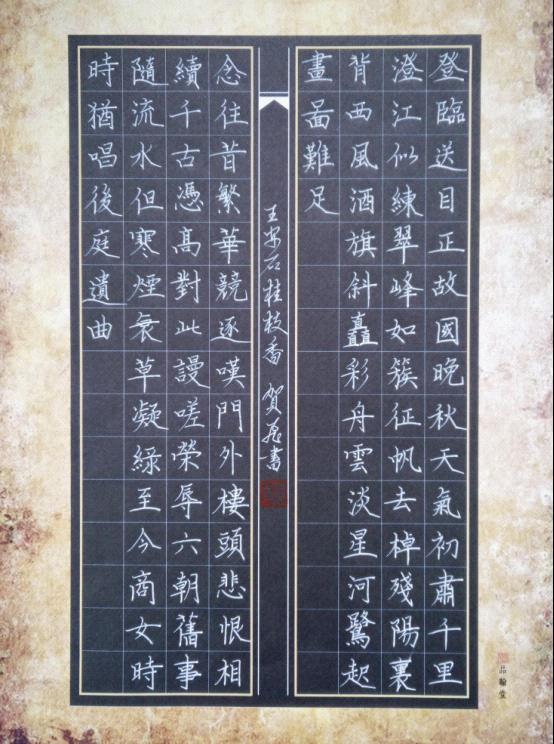 登臨送目正故國晚秋天氣初肅千里
澄江似練翠峰如簇征帆去棹殘陽裏
背西風酒旗斜矗彩舟雲淡星河鷺起
畫啚難足
王安石桂枝香 賀書
念往昔繁華競逐嘆門外樓頭悲恨相
續千古憑高對此謾嗟榮辱六朝舊事
隨流水但寒煙衰草凝綠至今商女時
時猶唱後庭遺曲
品翰堂